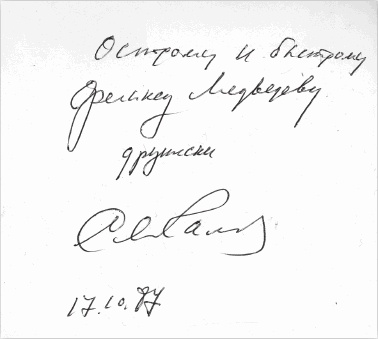 Острому и быстрому
Феликсу Медведеву
дружески
17.10.87